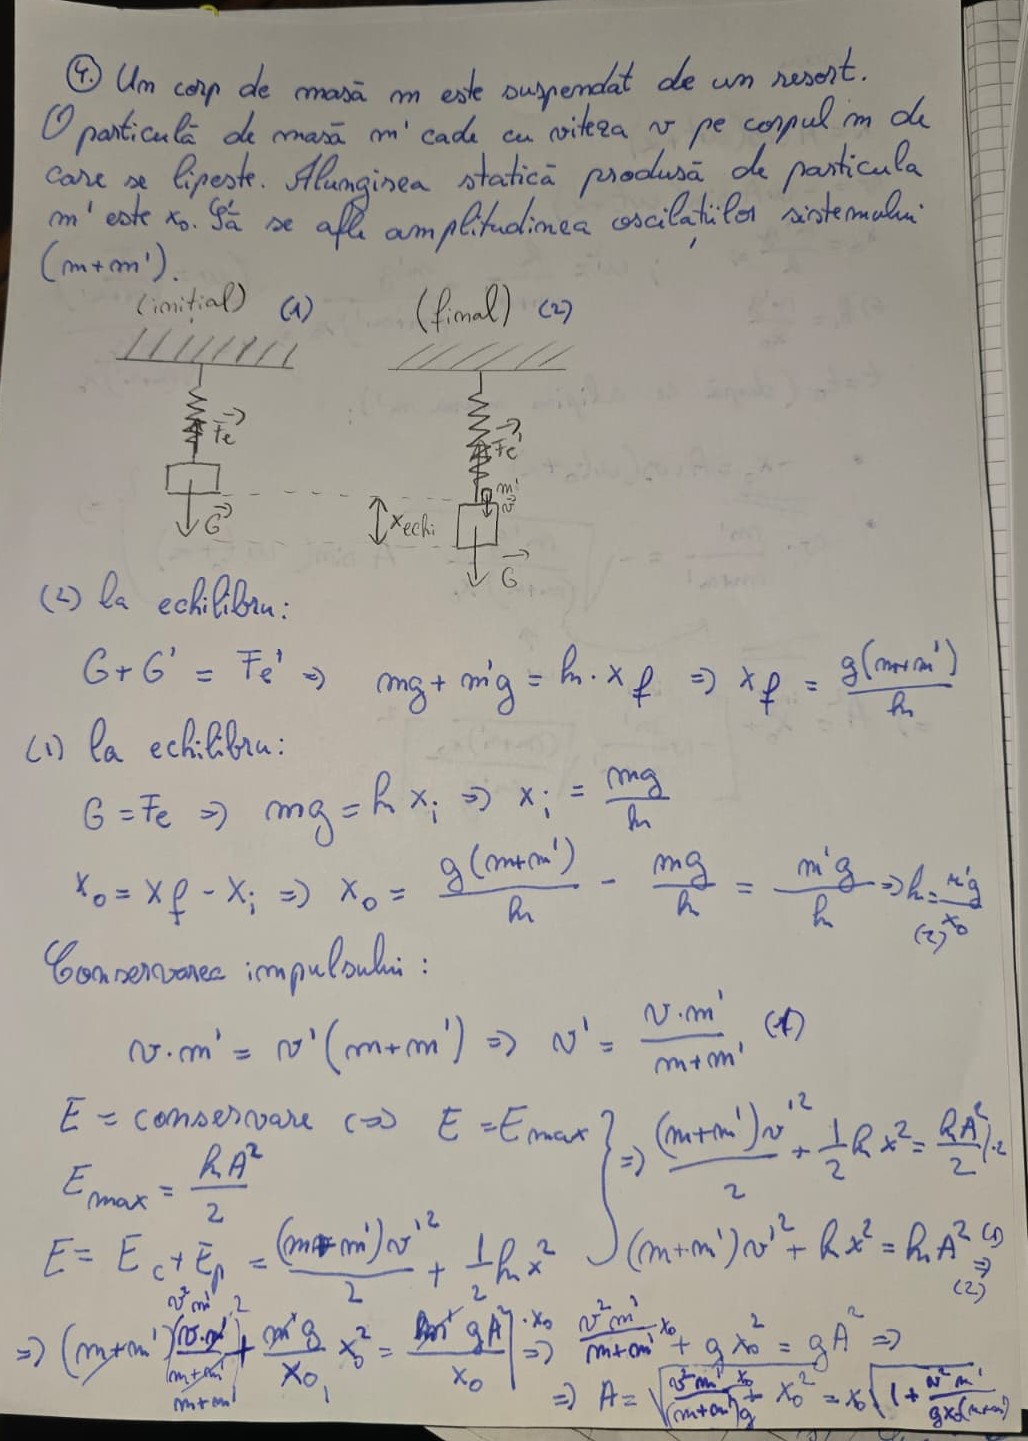 4. Un corp de masă m este suspendat de un resort.
O particulă de masă m' cade cu viteza v pe corpul m de
care se lipește. Alungirea statică produsă de particula
m' este x₀. Să se afle amplitudinea oscilațiilor sistemului
(m+m').
(inițial) (1) (final) (2)
Fe Fe'
m'
v
G xechi
G
(2) la echilibru:
G+G' = Fe' => mg+m'g = k·x_f => x_f = g(m+m')/k
(1) la echilibru:
G = Fe => mg = k x_i => x_i = mg/k
x₀ = x_f - x_i => x₀ = g(m+m')/k - mg/k = m'g/k => k = m'g/x₀ (2)
Conservarea impulsului:
v·m' = v'(m+m') => v' = v·m'/(m+m') (1)
E = conservare <=> E = Emax } => (m+m')v'²/2 + 1/2 k x² = kA²/2 |·2
Emax = kA²/2
E = Ec + Ep = (m+m')v'²/2 + 1/2 k x² (m+m')v'² + k x² = kA² (1) => (2)
=> (m+m') (v·m'/(m+m'))² + m'g/x₀ x₀² = m' gA²/x₀ |·x₀ => v²m'/(m+m') x₀ + g x₀² = gA² =>
=> A = √(v²m' x₀/((m+m')g) + x₀²) = x₀ √(1 + v²m'/(gx₀(m+m')))